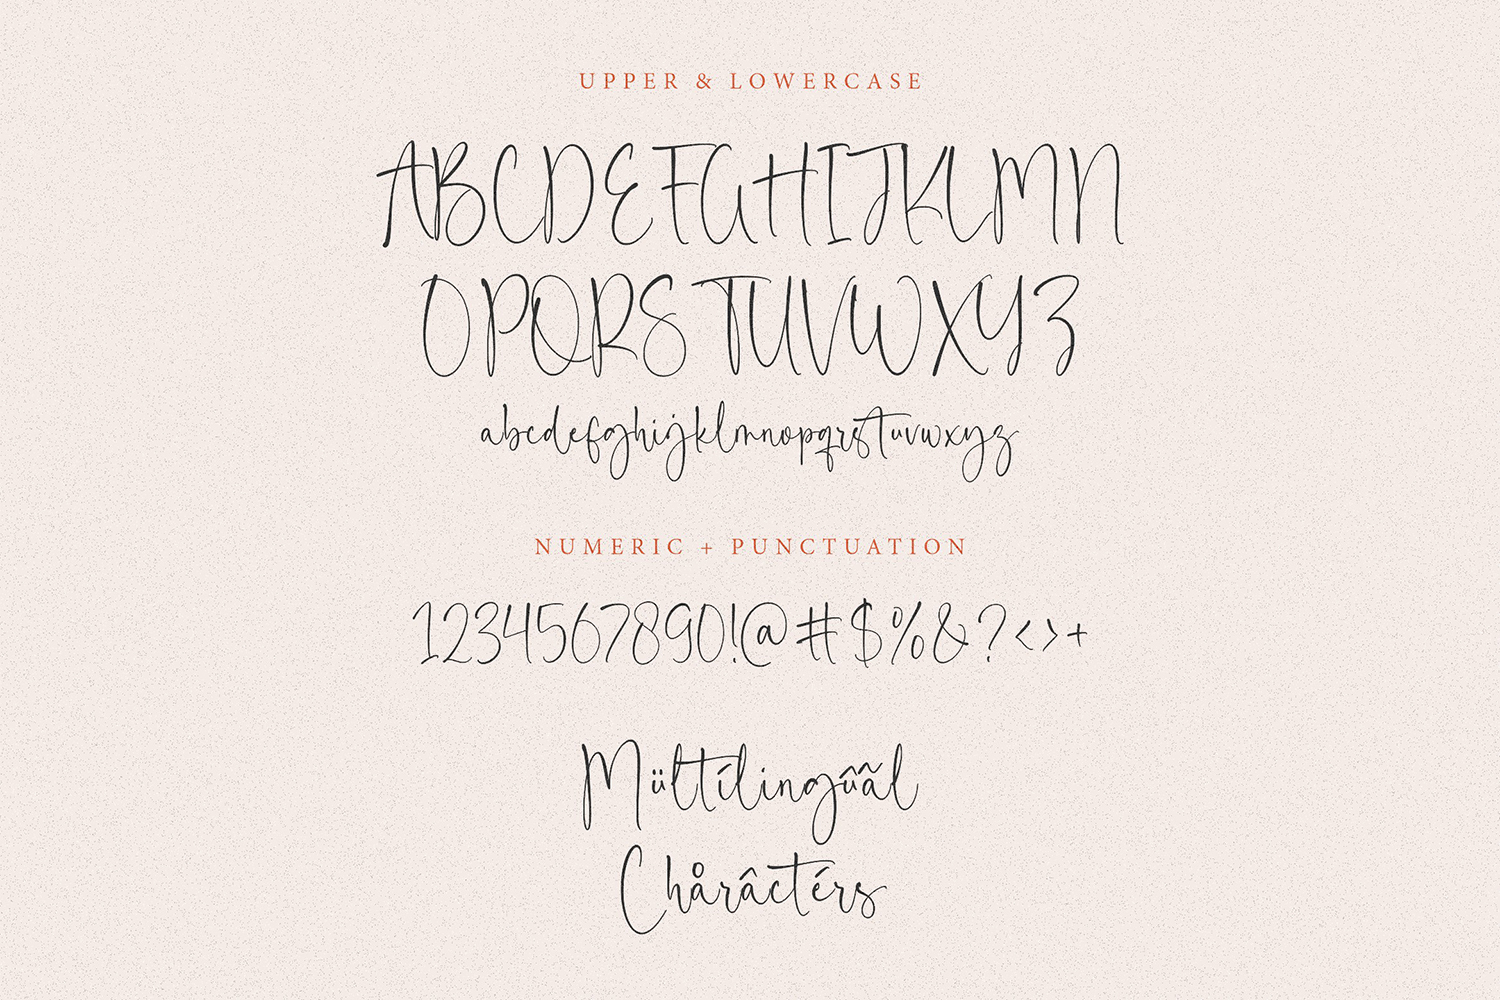 UPPER & LOWERCASE
ABCDEFGHIJKLMN
OPQRSTUVWXYZ
abcdefghijklmnopqrstuvwxyz
NUMERIC + PUNCTUATION
1234567890!@#$%&?<>+
Mültílingûãl
Chårâctérs